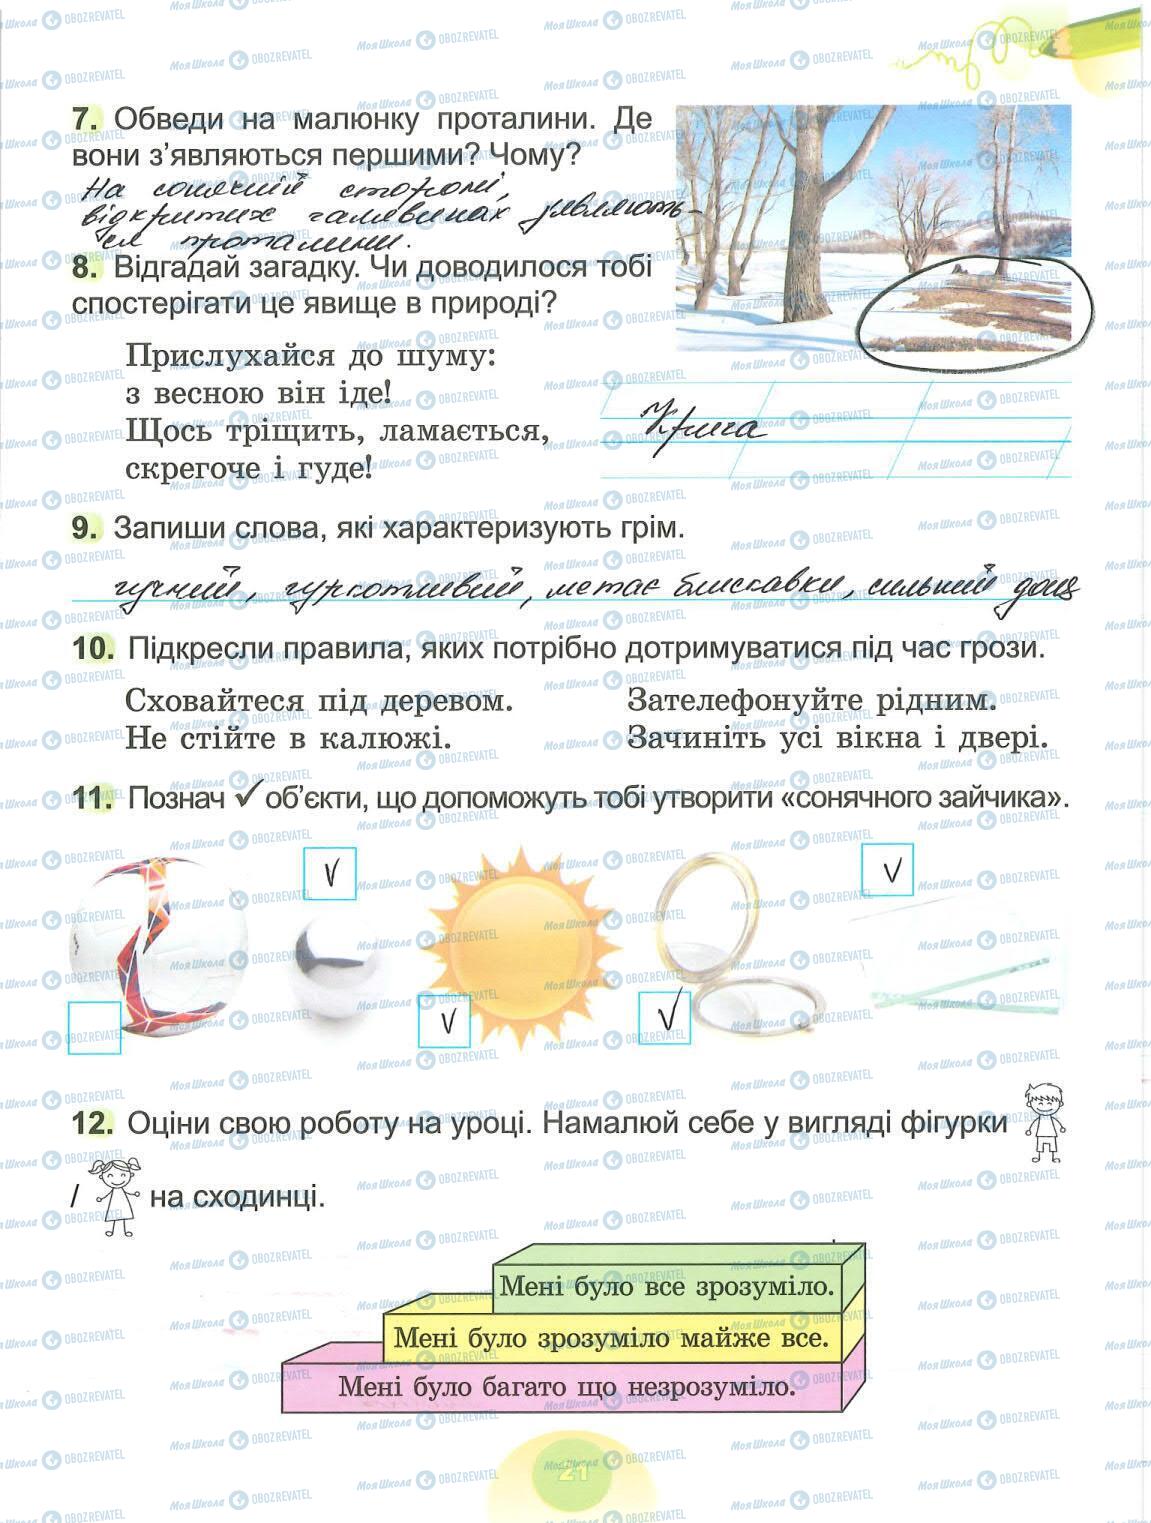 7. Обведи на малюнку проталини. Де
вони з’являються першими? Чому?
На сонячній стороні,
відкритих галявинах з'являють-
ся проталини.
8. Відгадай загадку. Чи доводилося тобі
спостерігати це явище в природі?
Прислухайся до шуму:
з весною він іде!
Щось тріщить, ламається,
скрегоче і гуде!
Крига
9. Запиши слова, які характеризують грім.
гучний, гуркотливий, метає блискавки, сильний дощ
10. Підкресли правила, яких потрібно дотримуватися під час грози.
Сховайтеся під деревом. Зателефонуйте рідним.
Не стійте в калюжі. Зачиніть усі вікна і двері.
11. Познач ✓ об’єкти, що допоможуть тобі утворити «сонячного зайчика».
12. Оціни свою роботу на уроці. Намалюй себе у вигляді фігурки
/ на сходинці.
Мені було все зрозуміло.
Мені було зрозуміло майже все.
Мені було багато що незрозуміло.
21
МояШкола OBOZREVATEL